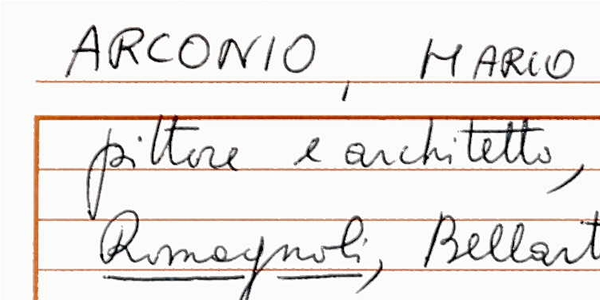 ARCONIO, MARIO
pittore e architetto,
Romagnoli, Bellart